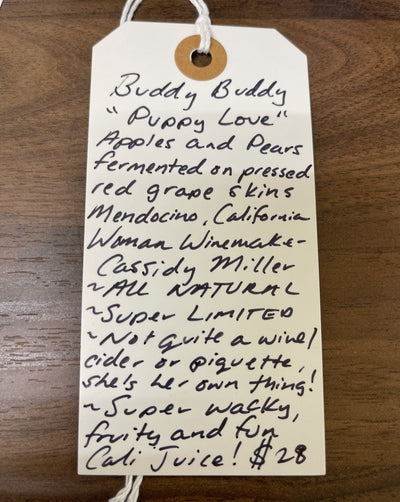 Buddy Buddy
"Puppy Love"
Apples and Pears
fermented on pressed
red grape skins
Mendocino, California
Woman Winemaker
Cassidy Miller
~ALL NATURAL
~Super LIMITED
~Not quite a wine/
cider or piquette,
she's her own thing!
~Super wacky,
fruity and fun
Cali Juice! $28